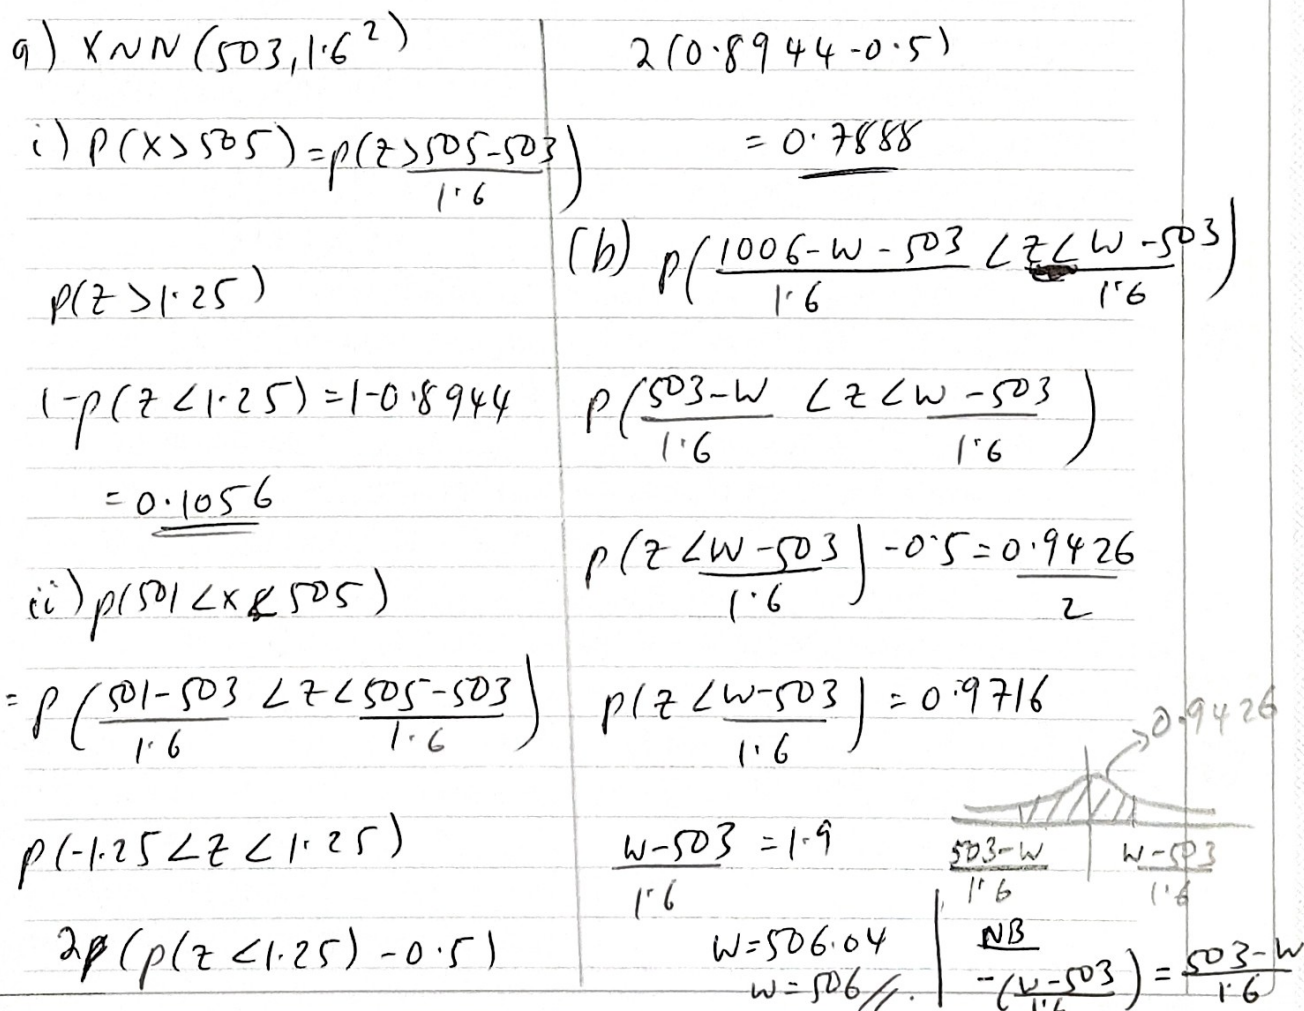 a) X ~ N (503, 1.6²)
i) P(X > 505) = p(z > (505-503)/1.6)
p(z > 1.25)
1-p(z < 1.25) = 1-0.8944
= 0.1056
ii) p(501 < x < 505)
= p((501-503)/1.6 < z < (505-503)/1.6)
p(-1.25 < z < 1.25)
2(p(z < 1.25) - 0.5)
2(0.8944-0.5)
= 0.7888
(b) p((1006-w-503)/1.6 < z < (w-503)/1.6)
p((503-w)/1.6 < z < (w-503)/1.6)
p(z < (w-503)/1.6) - 0.5 = 0.9426/2
p(z < (w-503)/1.6) = 0.9716
0.9426
(503-w)/1.6 (w-503)/1.6
(w-503)/1.6 = 1.9
w = 506.04
w = 506
NB
-((w-503)/1.6) = (503-w)/1.6